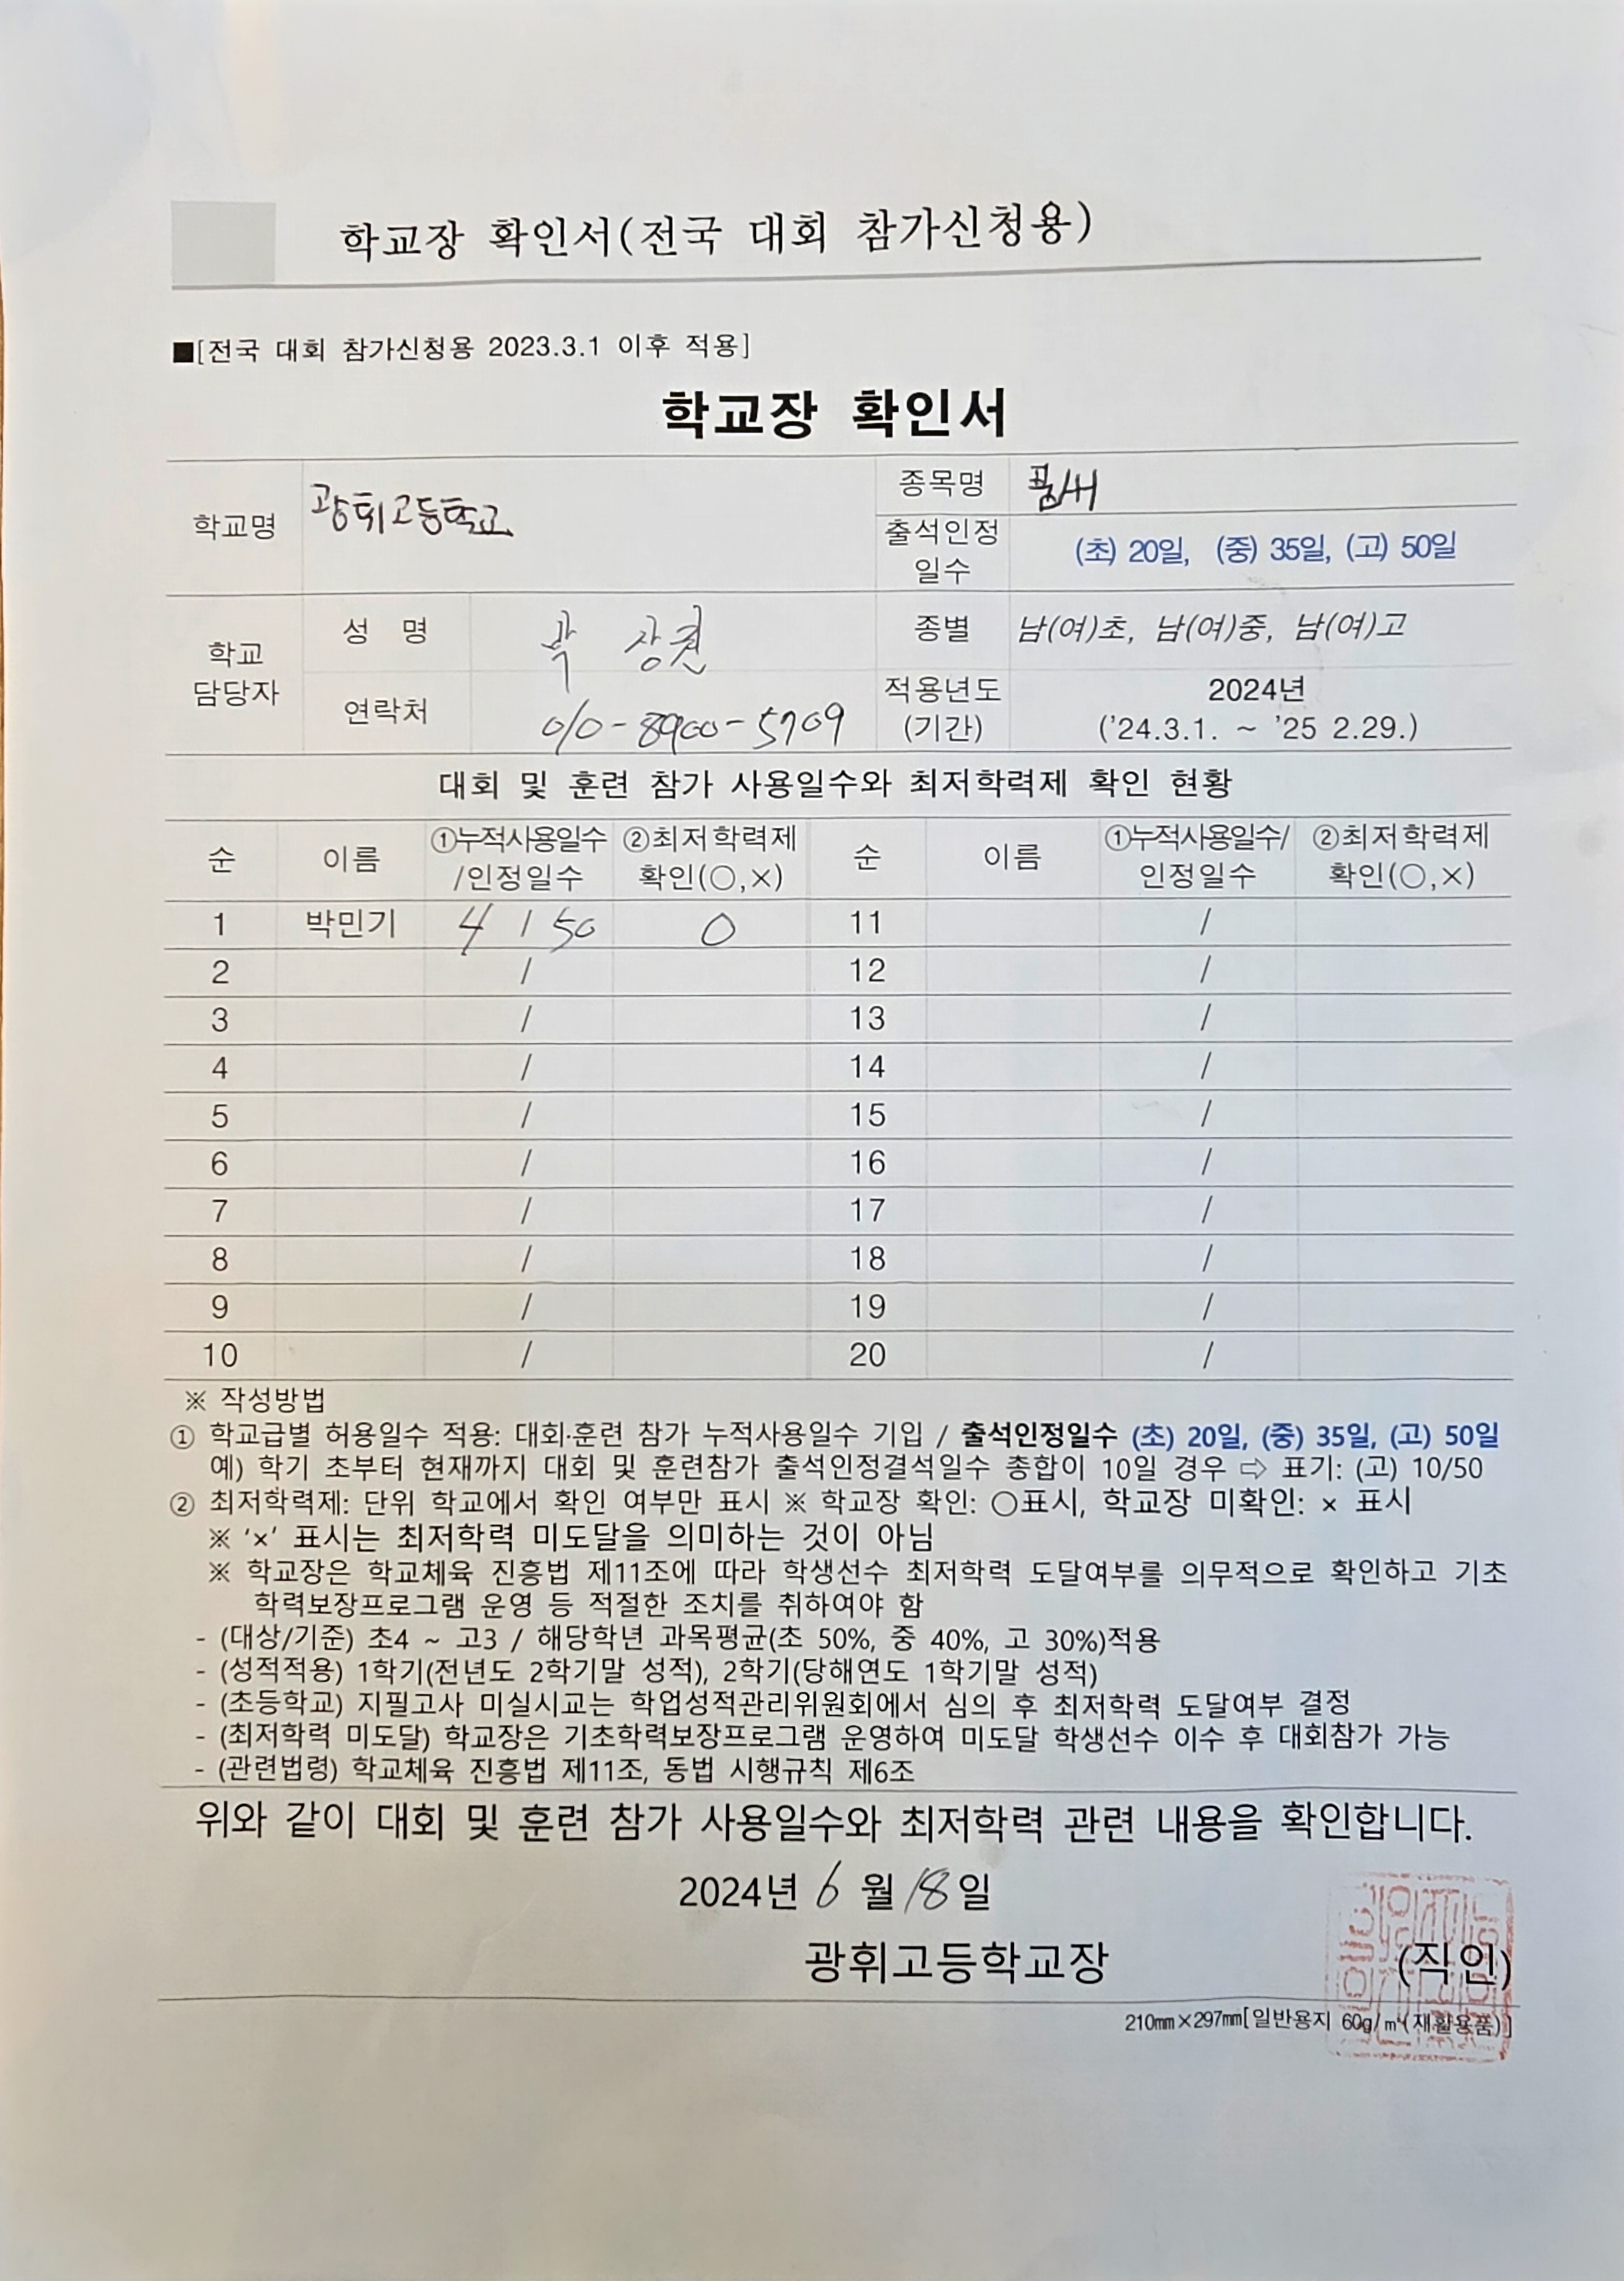 학교장 확인서(전국 대회 참가신청용)
■[전국 대회 참가신청용 2023.3.1 이후 적용]
학교장 확인서
학교명 광휘고등학교 종목명 품새
출석인정일수 (초) 20일, (중) 35일, (고) 50일
학교 담당자 성 명 곽 상권 종별 남(여)초, 남(여)중, 남(여)고
연락처 010-8900-5709 적용년도 (기간) 2024년 ('24.3.1. ~ '25 2.29.)
대회 및 훈련 참가 사용일수와 최저학력제 확인 현황
순 이름 ①누적사용일수/인정일수 ②최저학력제 확인(○,×) 순 이름 ①누적사용일수/인정일수 ②최저학력제 확인(○,×)
1 박민기 4 / 50 O 11 /
2 / 12 /
3 / 13 /
4 / 14 /
5 / 15 /
6 / 16 /
7 / 17 /
8 / 18 /
9 / 19 /
10 / 20 /
※ 작성방법
① 학교급별 허용일수 적용: 대회·훈련 참가 누적사용일수 기입 / 출석인정일수 (초) 20일, (중) 35일, (고) 50일
예) 학기 초부터 현재까지 대회 및 훈련참가 출석인정결석일수 총합이 10일 경우 ⇨ 표기: (고) 10/50
② 최저학력제: 단위 학교에서 확인 여부만 표시 ※ 학교장 확인: ○표시, 학교장 미확인: × 표시
※ '×' 표시는 최저학력 미도달을 의미하는 것이 아님
※ 학교장은 학교체육 진흥법 제11조에 따라 학생선수 최저학력 도달여부를 의무적으로 확인하고 기초
학력보장프로그램 운영 등 적절한 조치를 취하여야 함
- (대상/기준) 초4 ~ 고3 / 해당학년 과목평균(초 50%, 중 40%, 고 30%)적용
- (성적적용) 1학기(전년도 2학기말 성적), 2학기(당해연도 1학기말 성적)
- (초등학교) 지필고사 미실시교는 학업성적관리위원회에서 심의 후 최저학력 도달여부 결정
- (최저학력 미도달) 학교장은 기초학력보장프로그램 운영하여 미도달 학생선수 이수 후 대회참가 가능
- (관련법령) 학교체육 진흥법 제11조, 동법 시행규칙 제6조
위와 같이 대회 및 훈련 참가 사용일수와 최저학력 관련 내용을 확인합니다.
2024년 6 월 18 일
광휘고등학교장 (직인)
210㎜×297㎜[일반용지 60g/㎡(재활용품)]